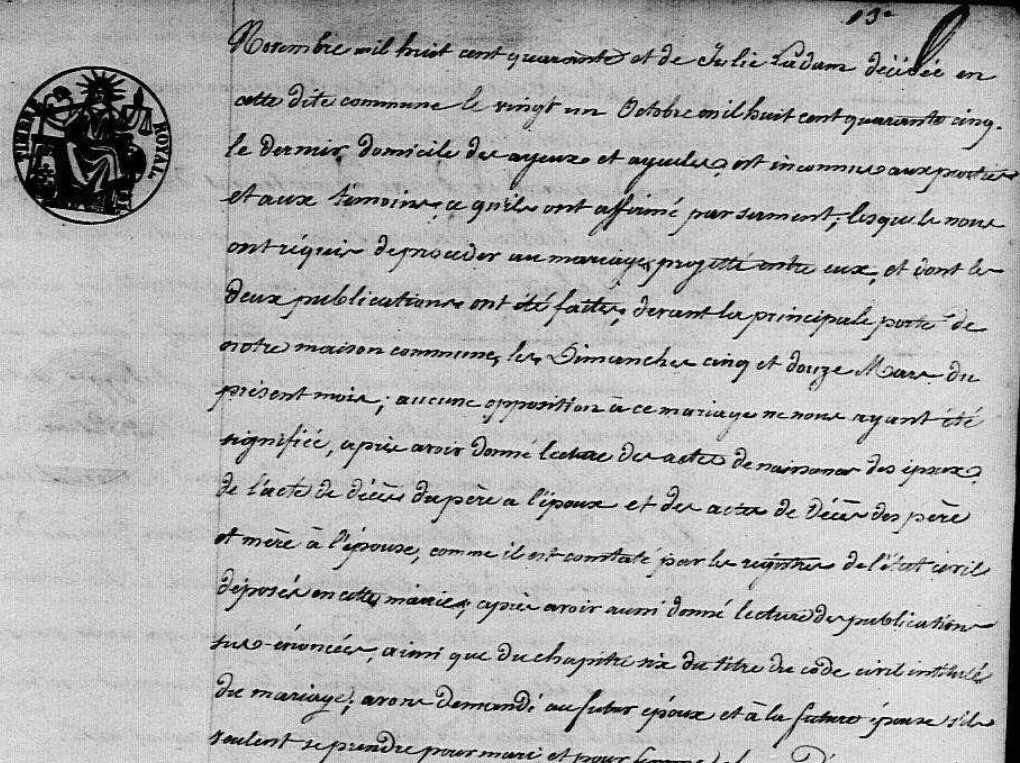 13e
Novembre mil huit cent quarante et de Julie Ladam décédée en
cette dite commune le vingt un Octobre mil huit cent quarante cinq.
le dernier domicile des ayeux et ayeules, est inconnu aux parties
et aux témoins, ce qu'ils ont affirmé par serment, lesquels nous
ont réquis de procéder au mariage, projetté entre eux, et dont les
deux publications ont été faites, devant la principale porte de
notre maison commune, les Dimanches cinq et douze Mars du
présent mois; aucune opposition à ce mariage ne nous ayant été
signifiée, après avoir donné lecture des actes de naissance des époux,
de l'acte de décès du père a l'époux et des actes de Décès des père
et mère à l'épouse, comme il est constaté par les registres de l'état civil
déposés en cette mairie, après avoir aussi donné lecture des publications
sus-énoncées, ainsi que du chapitre six du titre du code civil intitulé
du mariage, avons demandé au futur époux et à la future épouse s'ils
veulent se prendre pour mari et pour femme
TIMBRE ROYAL